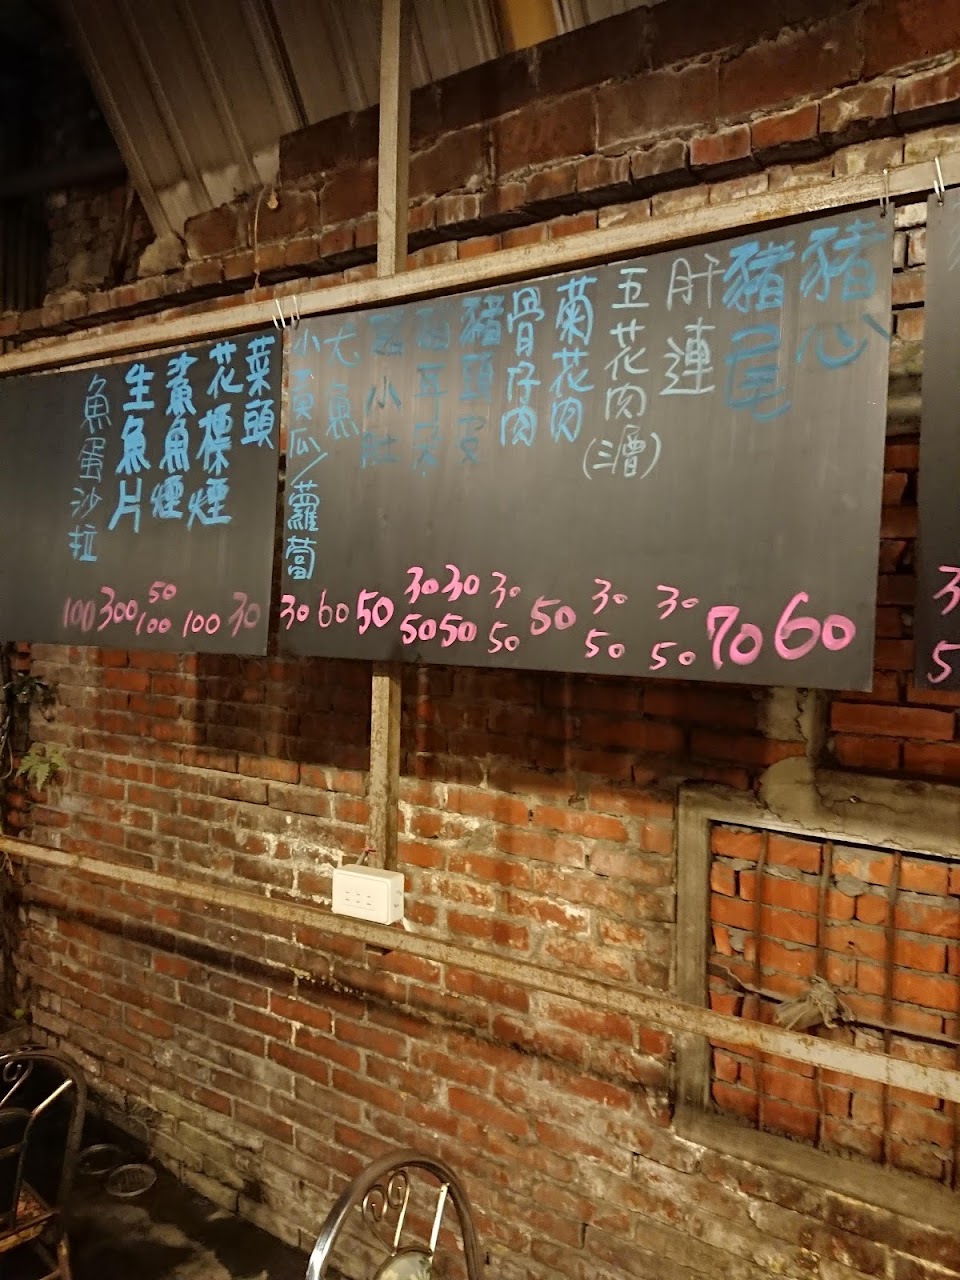 豬心 60
豬尾 70
肝連 30 50
五花肉(三層) 30 50
菊花肉 50
骨仔肉 30 50
豬頭皮 30 50
豬耳朶 30 50
豬小肚 50
尤魚 60
小黃瓜/蘿蔔 30
菜頭 30
花標煙 100
鯊魚煙 50 100
生魚片 300
魚蛋沙拉 100
3
5